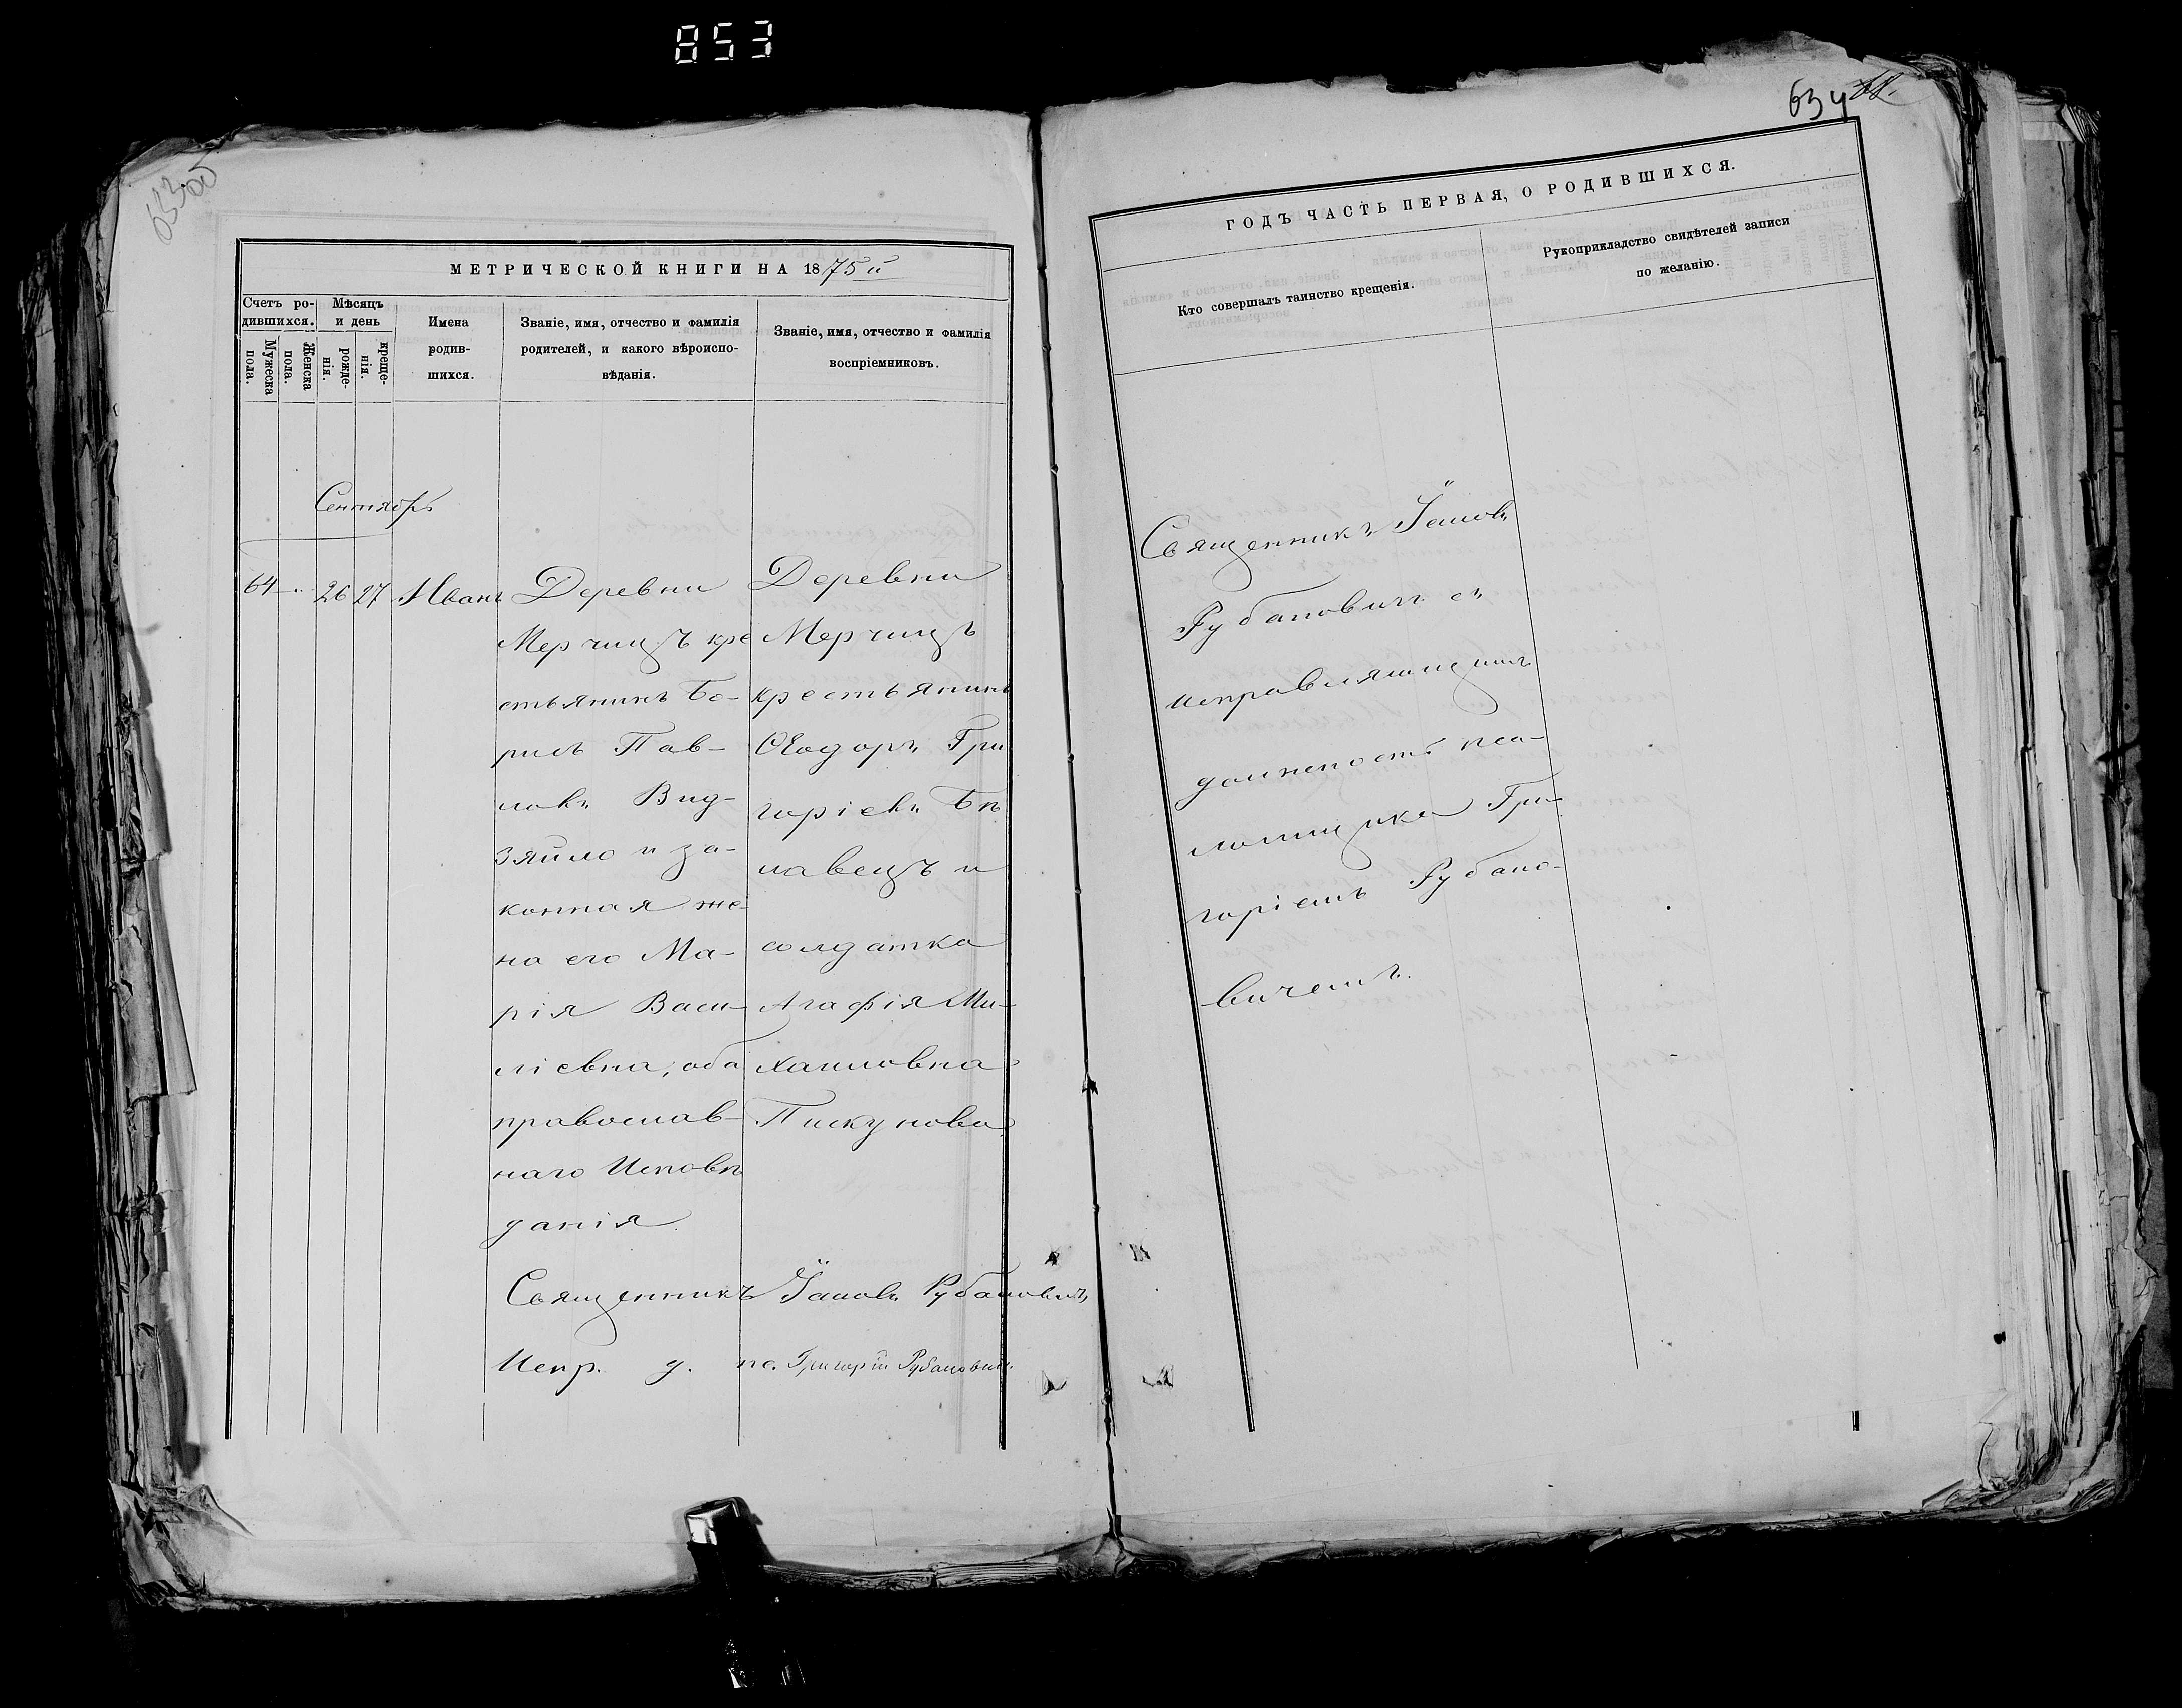 853
634
МЕТРИЧЕСКОЙ КНИГИ НА 1875й
Счетъ ро-
дившихся.
Мужеска
пола.
Женска
пола.
Мѣсяцъ
и день
рожде-
нія.
креще-
нія.
Имена
родив-
шихся.
Званіе, имя, отчество и фамилія
родителей, и какого вѣроиспо-
вѣданія.
Званіе, имя, отчество и фамилія
воспріемниковъ.
Сентябрь
64 26 27 Иванъ
Деревни
Мерчицъ кре
стьянинъ Бо-
рисъ Пав-
ловъ Вид-
зяйло и за-
конная же
на его Ма-
рія Васи-
ліевна, оба
православ-
наго Исповѣ
данія.
Деревни
Мерчицъ
крестьянинъ
Ѳеодоръ Гри
горіевъ Бѣ
лавецъ и
солдатка
Агафія Ми-
хаиловна
Пискунова
Священникъ Іаковъ Рубановичъ
Испр. д. пс. Григорій Рубановичъ.
ГОДЪ ЧАСТЬ ПЕРВАЯ, О РОДИВШИХСЯ.
Кто совершалъ таинство крещенія.
Рукоприкладство свидѣтелей записи
по желанію.
Священникъ Іаковъ
Рубановичъ съ
исправляющимъ
должность пса-
ломщика Гри-
горіемъ Рубано-
вичемъ.